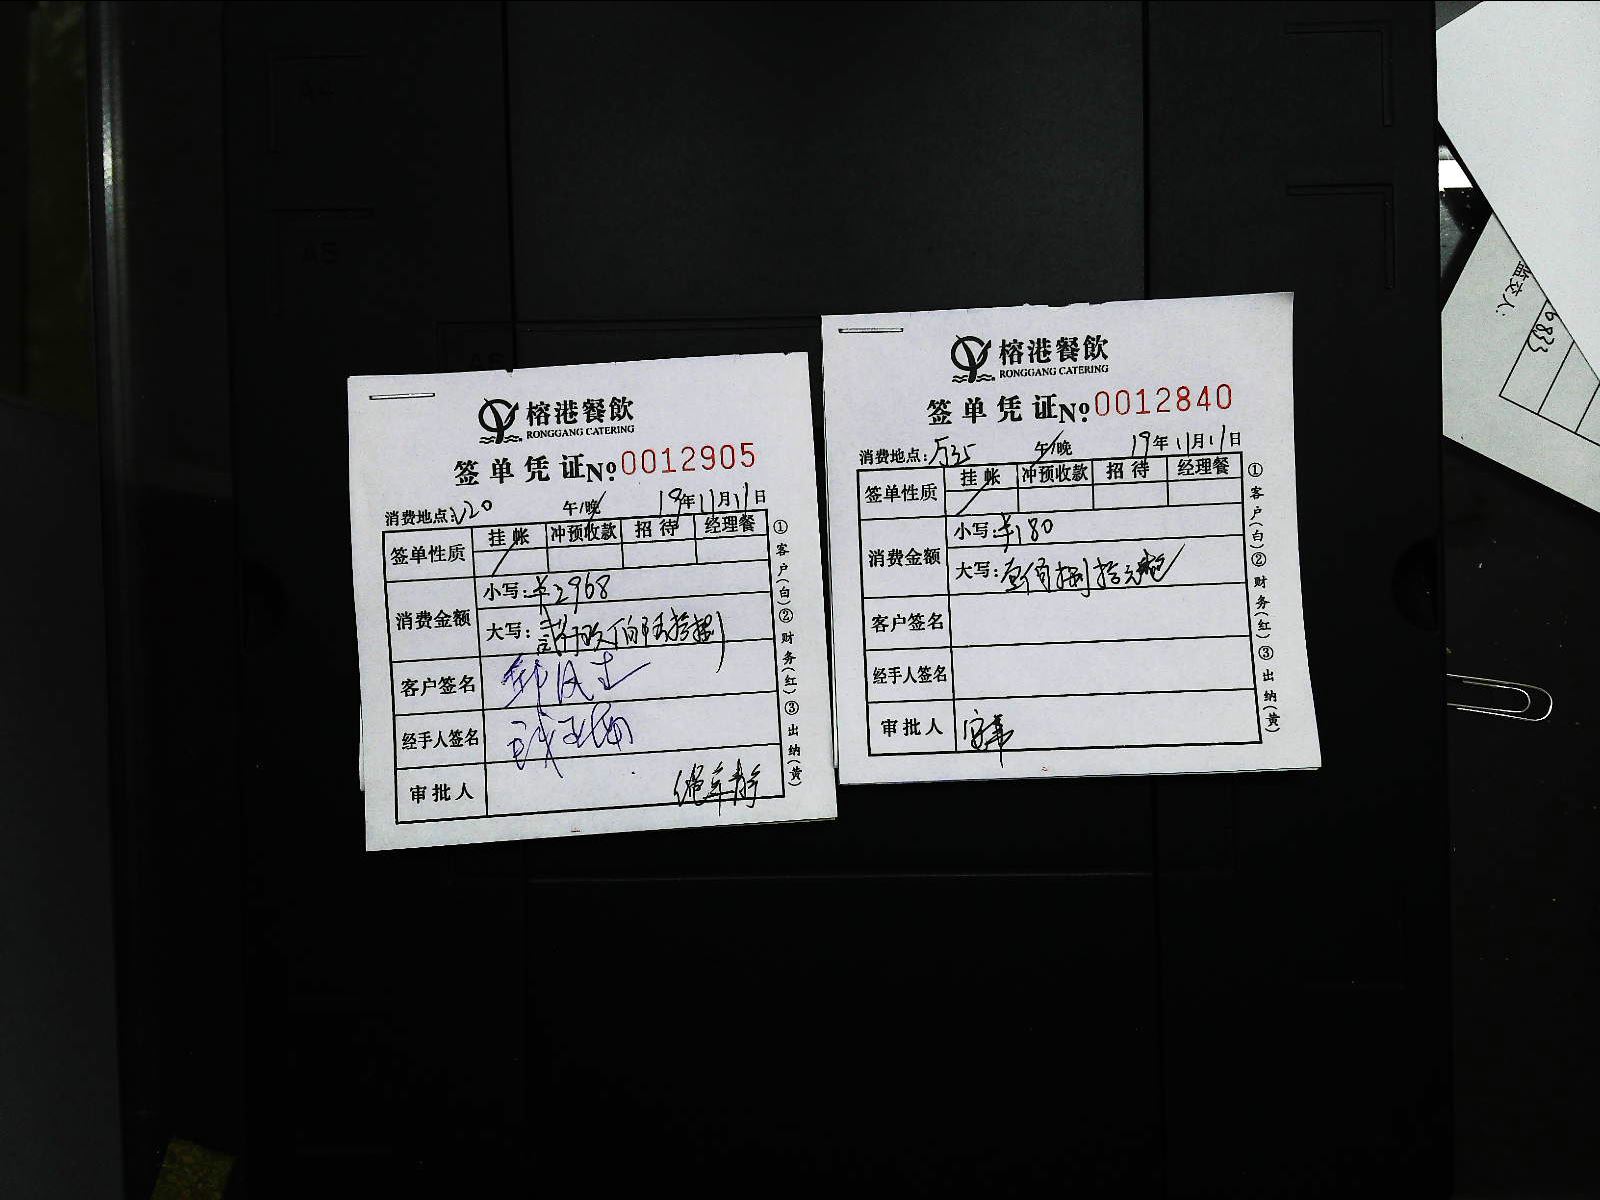 A4
A5
A6
榕港餐飲
RONGGANG CATERING
签单凭证 № 0012905
消费地点: V20 午/晚 19年11月11日
签单性质 挂帐 冲预收款 招待 经理餐
消费金额
小写: ¥2968
大写: 贰仟玖佰陆拾捌
客户签名
经手人签名
审批人
①客户(白)②财务(红)③出纳(黄)
榕港餐飲
RONGGANG CATERING
签单凭证 № 0012840
消费地点: 午/晚 19年11月11日
签单性质 挂帐 冲预收款 招待 经理餐
消费金额
小写: ¥180
大写: 壹佰捌拾元
客户签名
经手人签名
审批人
①客户(白)②财务(红)③出纳(黄)
监交人: